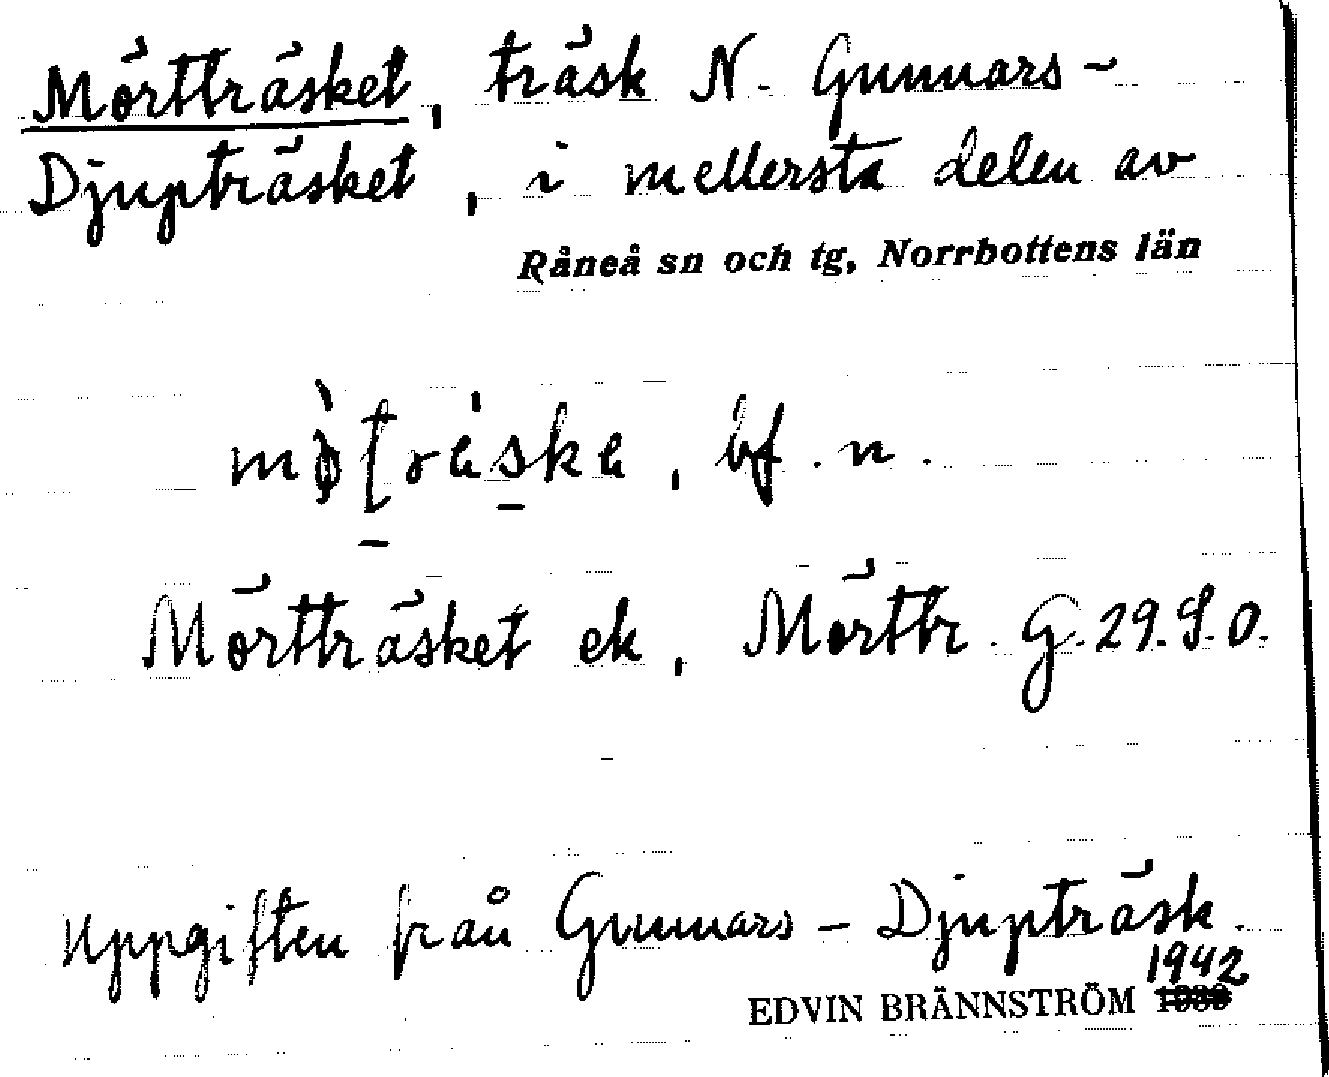 Mörtträsket, träsk N. Gunnars-
Djupträsket, i mellersta delen av
Råneå sn och tg, Norrbottens län
bf. n.
Mörtträsket ek, Mörttr. G. 29. S. O.
Uppgiften från Gunnars-Djupträsk.
1942
EDVIN BRÄNNSTRÖM